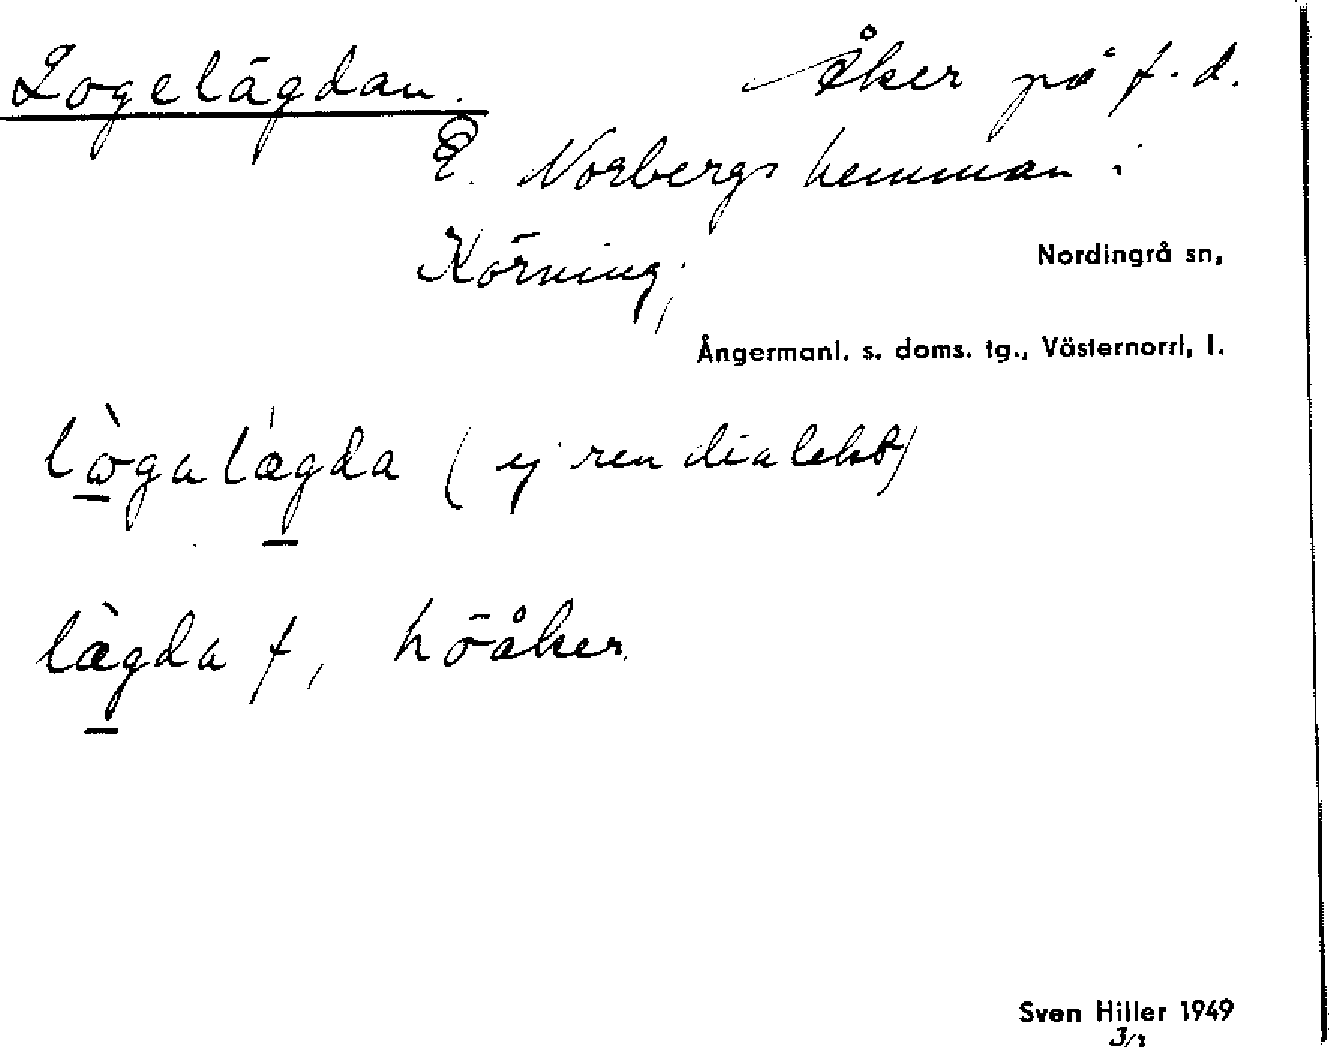 Logelägdan. Åker på f.d.
E. Norbergs hemman i
Körning,
Nordingrå sn,
Ångermanl. s. doms. tg., Västernorrl, l.
lògalǽgda (ej ren dialekt)
lægda f, höåker
Sven Hiller 1949